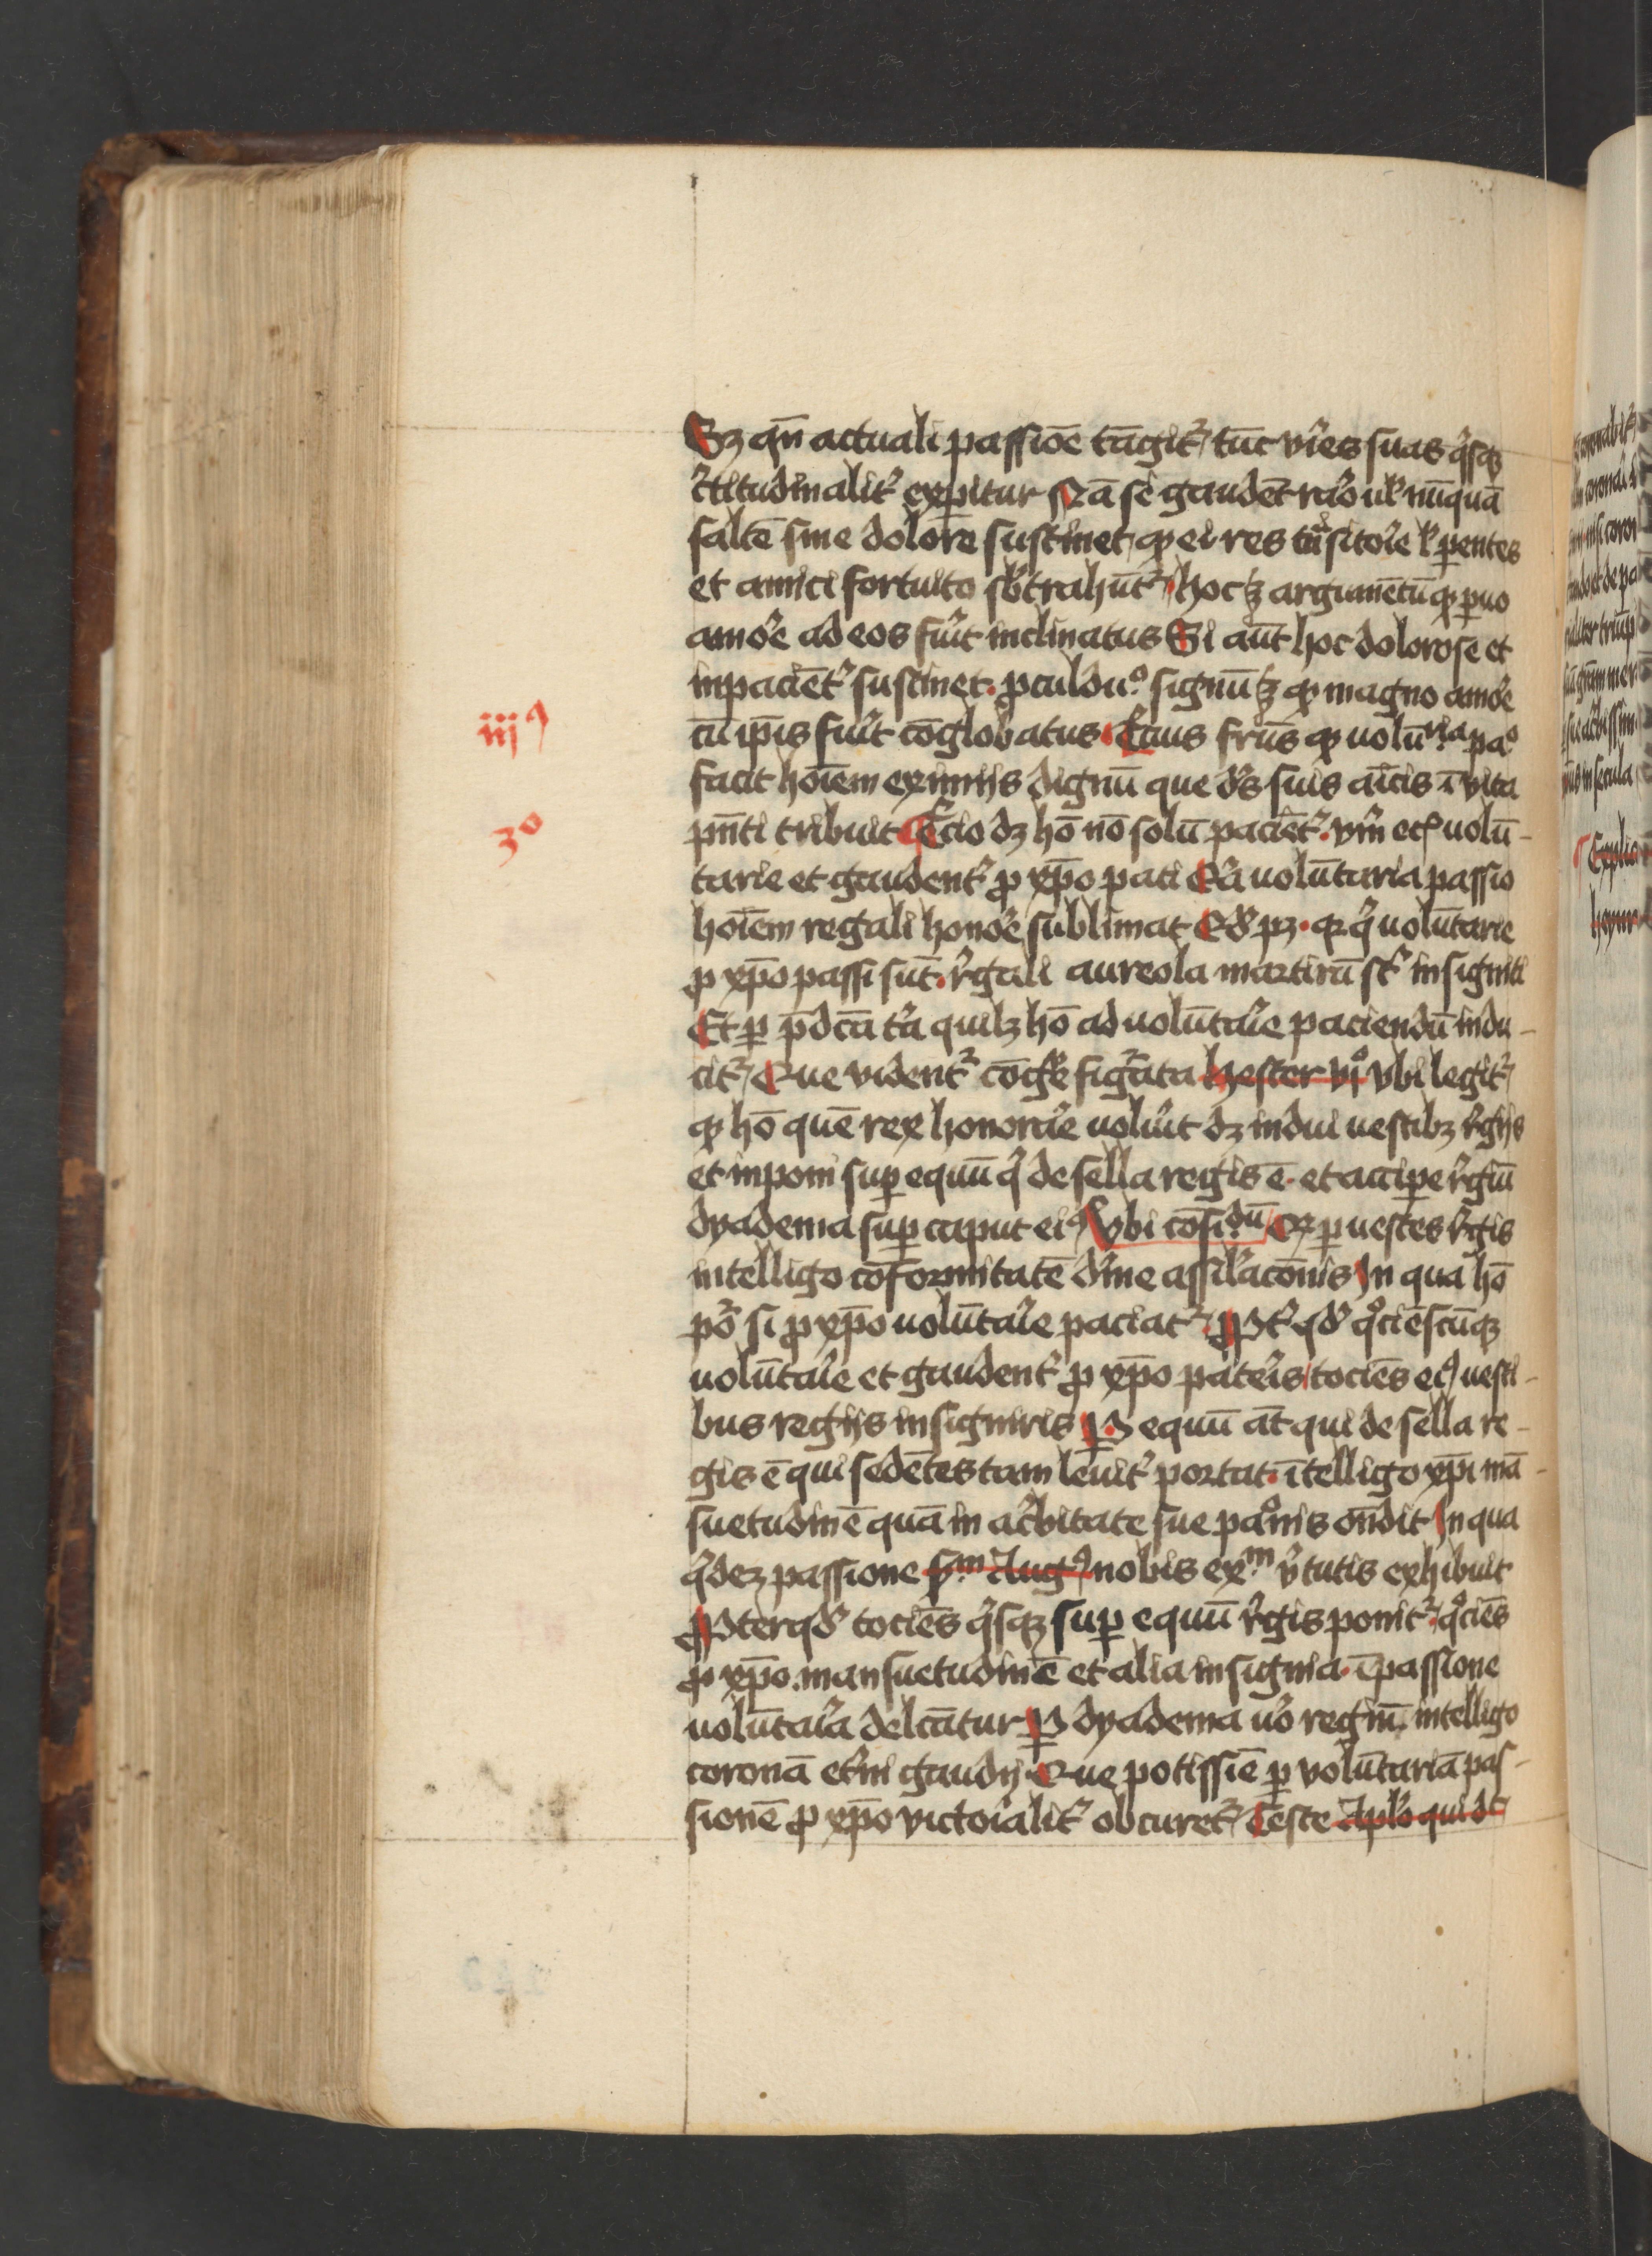 Sz qn̄ actuali passiōe tāgit᷑ tūc vires suas q̇sqꝫ
c̓titudinalit᷑ exp̲itur Nā si gaudēt raro ul̓ nūquā
saltē sine dolore sustinet ꝙ ei res tͣnsitorie l̓ p̲entes
et amici fortuito sb̓trahūt᷑ hoc ꝫ argumētū ꝙ p̲uo
amore ad eos fuit inclinatus Si aūt hoc dolorose et
inpaciēt᷑ sustinet. ꝓculduº signū ꝫ ꝙ magno amore
cū ip̄is fuit cōglobatus t̓cius fruc̄s ꝙ uolūria paº
facit hoīem eximijs dignū que ds̓ suis aīcis ī vita
pn̄ti tribuit T̓cio dꝫ hō nō solū paciēt᷑. vm̓ ecᷓ uolū-
tarie et gaudent᷑ ꝓ xp̄o pati Qr̓ uolūtaria passio
hoīem regali honore sublimat Qd̓ pꝫ. qꝛ q̇ uolūtarie
ꝓ xp̄o passi sūt. r̓gali aureola martirū st᷑ insigniti
Et p̲ p̄dcā t̓ia quilꝫ hō ad uolūtarie paciendū indu-
cit᷑ Que vident᷑ cōg̓e figͣta hester vjº vbi legit᷑
ꝙ hō quē rex honorare uoluit dꝫ indui uestibꝫ r̓gijs
et inponi sup̲ equū q̇ de sella regis ē. et accip̲e r̓giū
dyadema sup̲ caput eiꝰ Vbi cōsi.dū Qꝛ p̲ uestes r̓gis
intelligo cōformitatē dīne assil̓acōnis In qua hō
pōr̓ si ꝓ xp̄o uolūtarie paciat᷑. Ꝓpt᷑ qd̓ qͦciēscūqꝫ
uolūtarie et gaudent᷑ ꝓ xp̄o pateris tociēs eiꝰ uesti-
bus regijs insigniris P̲ equū āt qui de sella re-
gis ē qui sedētes tam leuit᷑ portat. ītelligo xp̄i mā-
suetudinē quā in ac̓bitate sue paͦnis on̄dit In qua
q̇deꝫ passione sm̄ Augꝰ nobis ex.m v̓tutis exhibuit
Ꝓpterqd̓ tociēs q̇sqꝫ sup̲ equū r̓gis ponit᷑. qͦciēs
ꝓ xp̄o mansuetudinē et alia insignia ī passione
uolūtaria delcātur P̲ dyadema uō regiū. intelligo
coronā et̓ni gaudij Que potissiē p̲ volūtariā pas-
sionē ꝓ xp̄o victorialit᷑ obcuret᷑ Teste Apl̓o qui dt̄
iijꝰ
3º